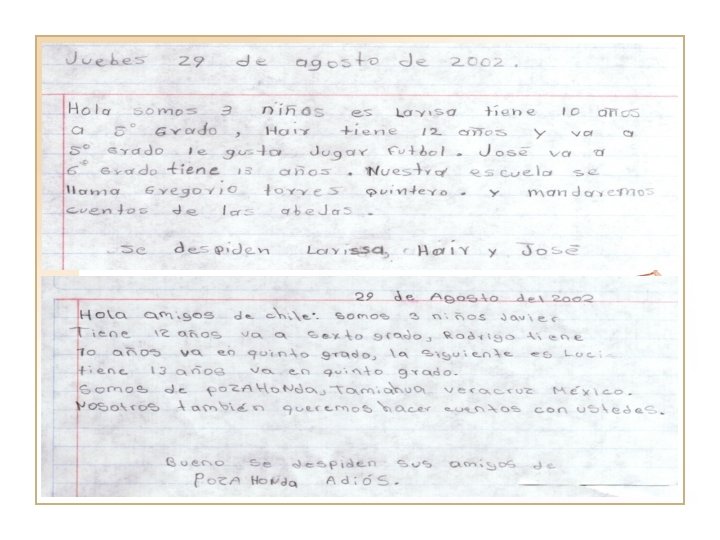 Juebes 29 de agosto de 2002.
Hola somos 3 niños es Larisa tiene 10 años
a 5° Grado, Hair tiene 12 años y va a
5° Grado le gusta Jugar Futbol. José va a
6° Grado tiene 13 años. Nuestra escuela se
llama Gregorio torres quintero. y mandaremos
cuentos de las abejas.
se despiden Larissa, Hair y José
29 de Agosto del 2002
Hola amigos de chile: somos 3 niños Javier
Tiene 12 años va a sexto grado, Rodrigo tiene
10 años va en quinto grado, la siguiente es Luci
tiene 13 años va en quinto grado.
Somos de POZA HONda, Tamiahua veracruz México.
Nosotros también queremos hacer cuentos con ustedes.
Bueno se despiden sus amigos de
POZA HONda Adiós.